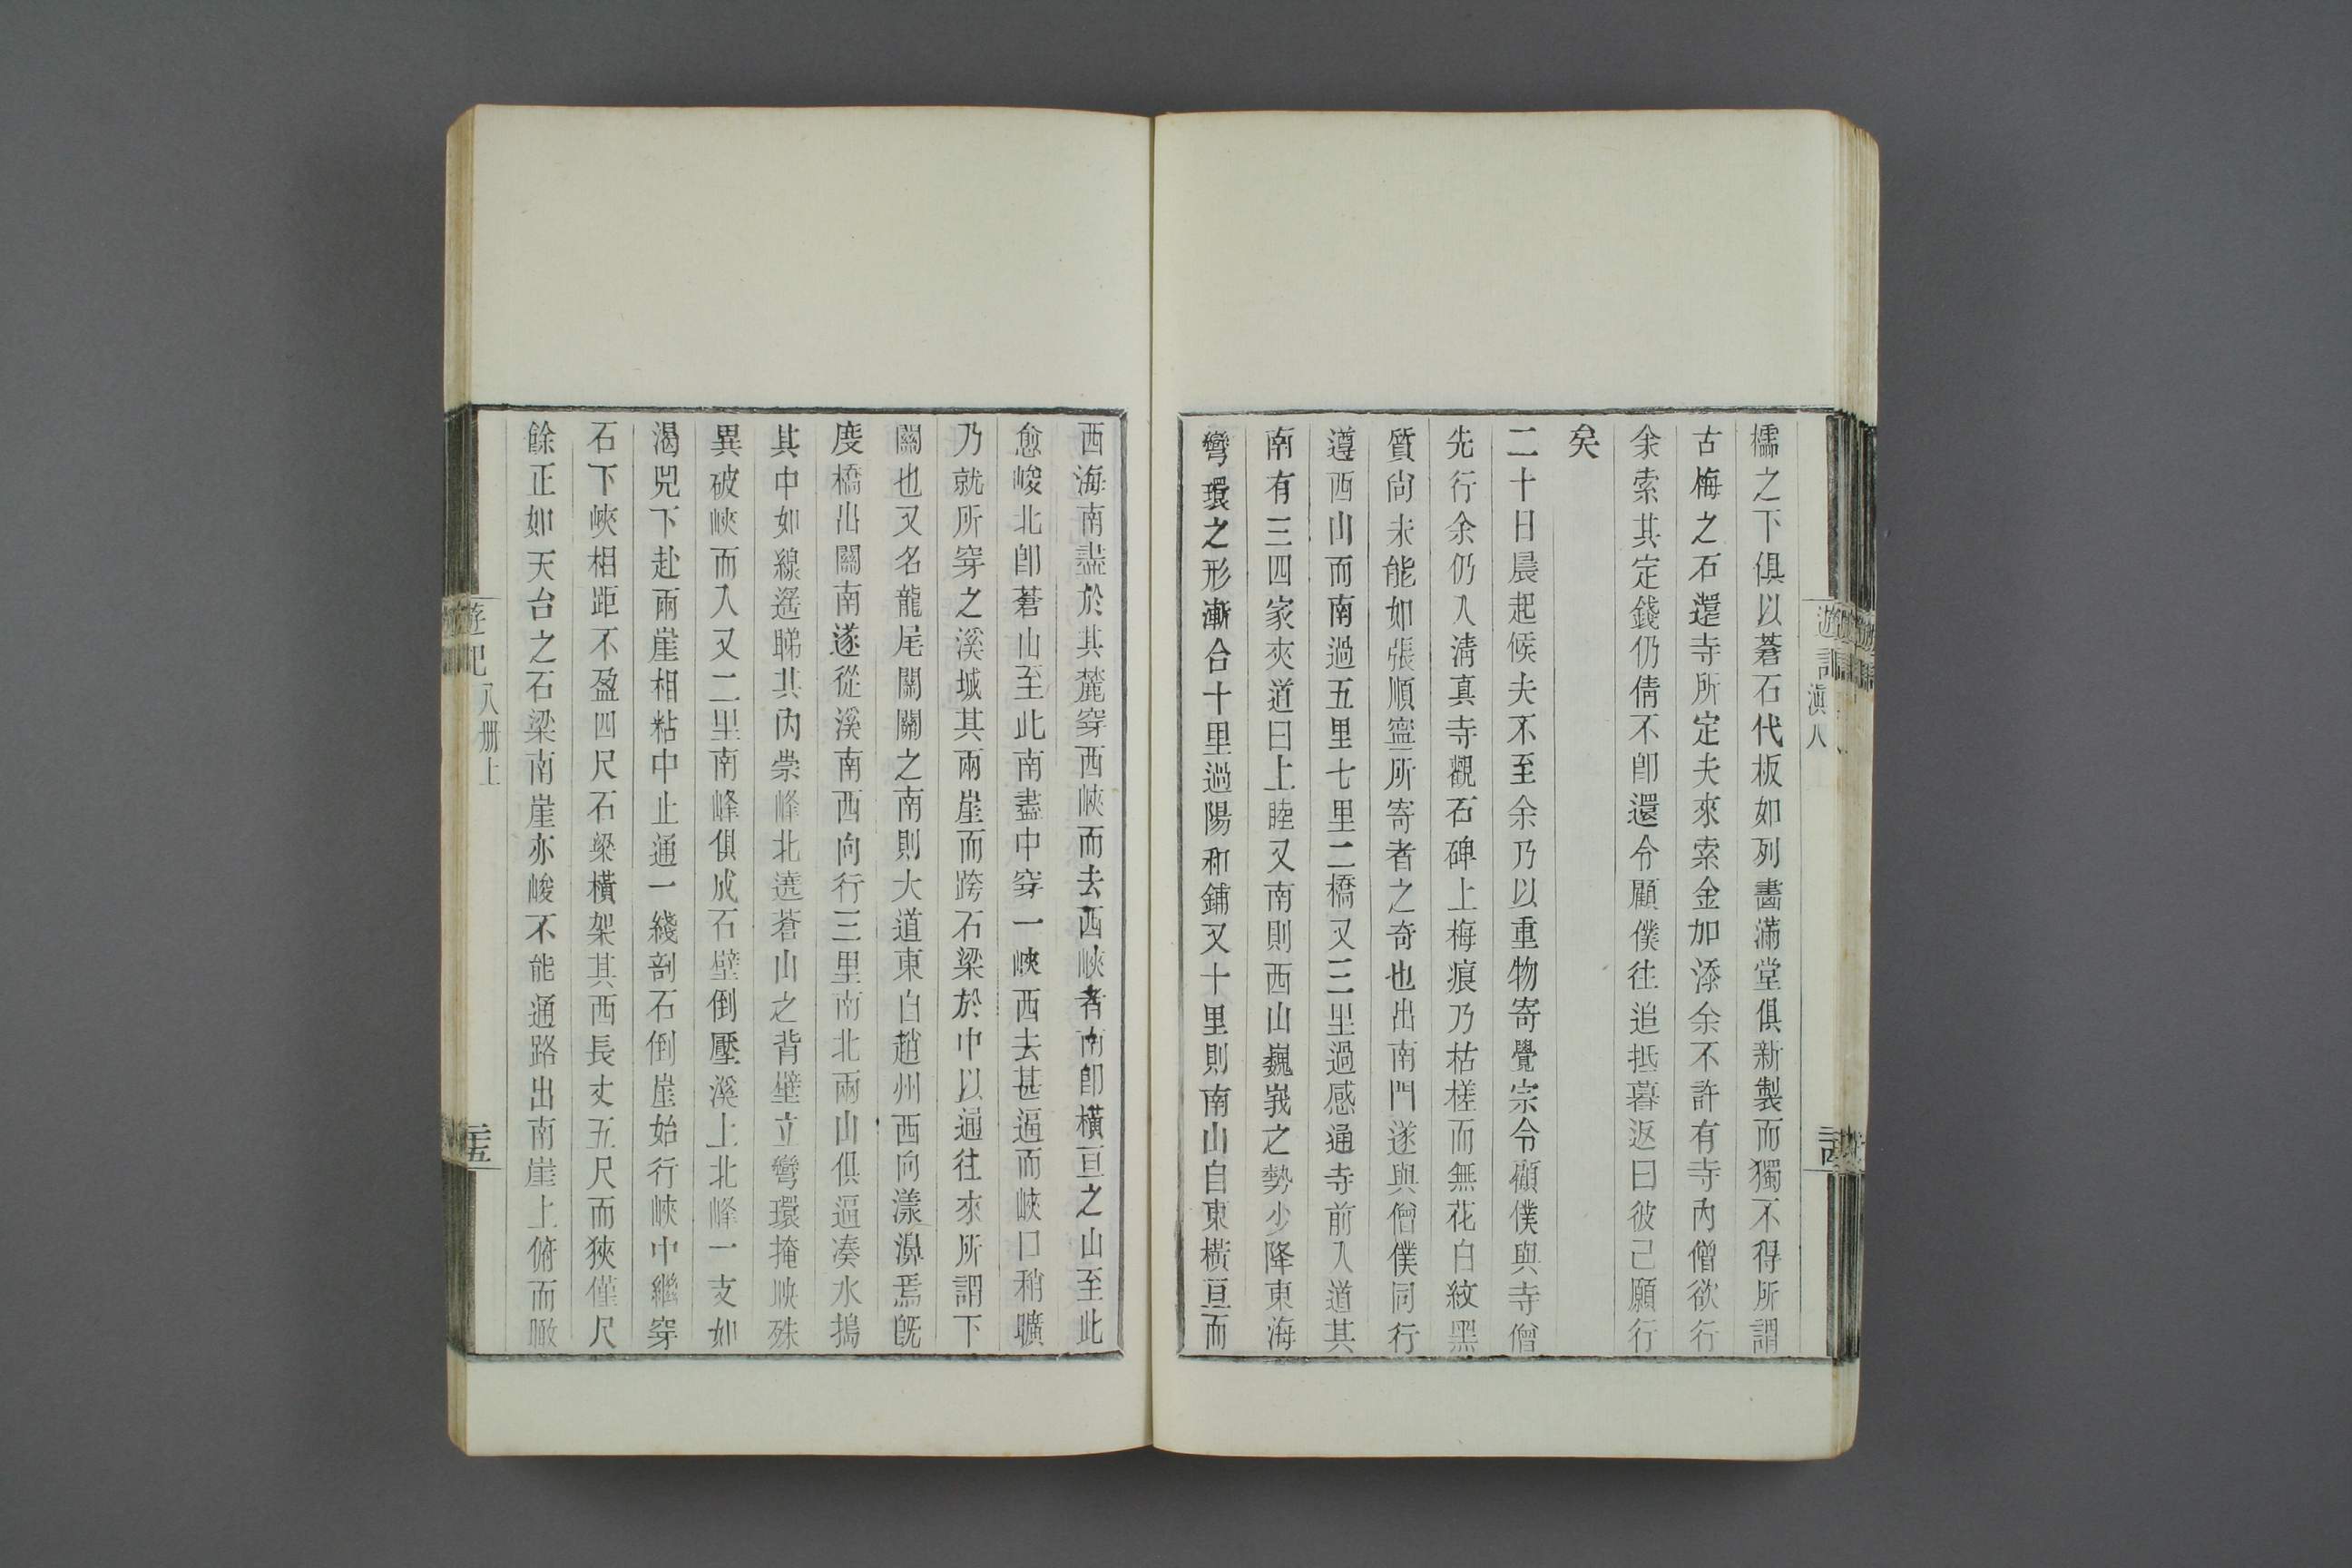 遊記
滇八
櫺之下俱以蒼石代板如列畵滿堂俱新製而獨不得所謂
古梅之石還寺所定夫來索金加添余不許有寺內僧欲行
余索其定錢仍倩不卽還令顧僕往追抵暮返曰彼已願行
矣
二十日晨起候夫不至余乃以重物寄覺宗令顧僕與寺僧
先行余仍入淸真寺觀石碑上梅痕乃枯槎而無花白紋黑
質尙未能如張順寧所寄者之奇也出南門遂與僧僕同行
遵西山而南過五里七里二橋又三里過感通寺前入道其
南有三四家夾道曰上睦又南則西山巍峩之勢少降東海
彎環之形漸合十里過陽和鋪又十里則南山自東橫亘而
西海南盡於其麓穿西峽而去西峽者南卽橫亘之山至此
愈峻北卽蒼山至此南盡中穿一峽西去甚逼而峽口稍曠
乃就所穿之溪城其兩崖而跨石梁於中以通往來所謂下
關也又名龍尾關關之南則大道東自趙州西向漾濞焉旣
度橋出關南遂從溪南西向行三里南北兩山俱逼凑水搗
其中如線遙睇其內崇峰北遶蒼山之背壁立彎環掩映殊
異破峽而入又二里南峰俱成石壁倒壓溪上北峰一支如
渴兕下赴兩崖相粘中止通一綫剖石倒崖始行峽中繼穿
石下峽相距不盈四尺石梁橫架其西長丈五尺而狹僅尺
餘正如天台之石梁南崖亦峻不能通路出南崖上俯而瞰
遊記
八册上
二十五